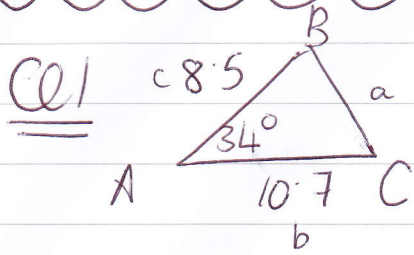 B
Q1 c 8.5 a
34°
A 10.7 C
b